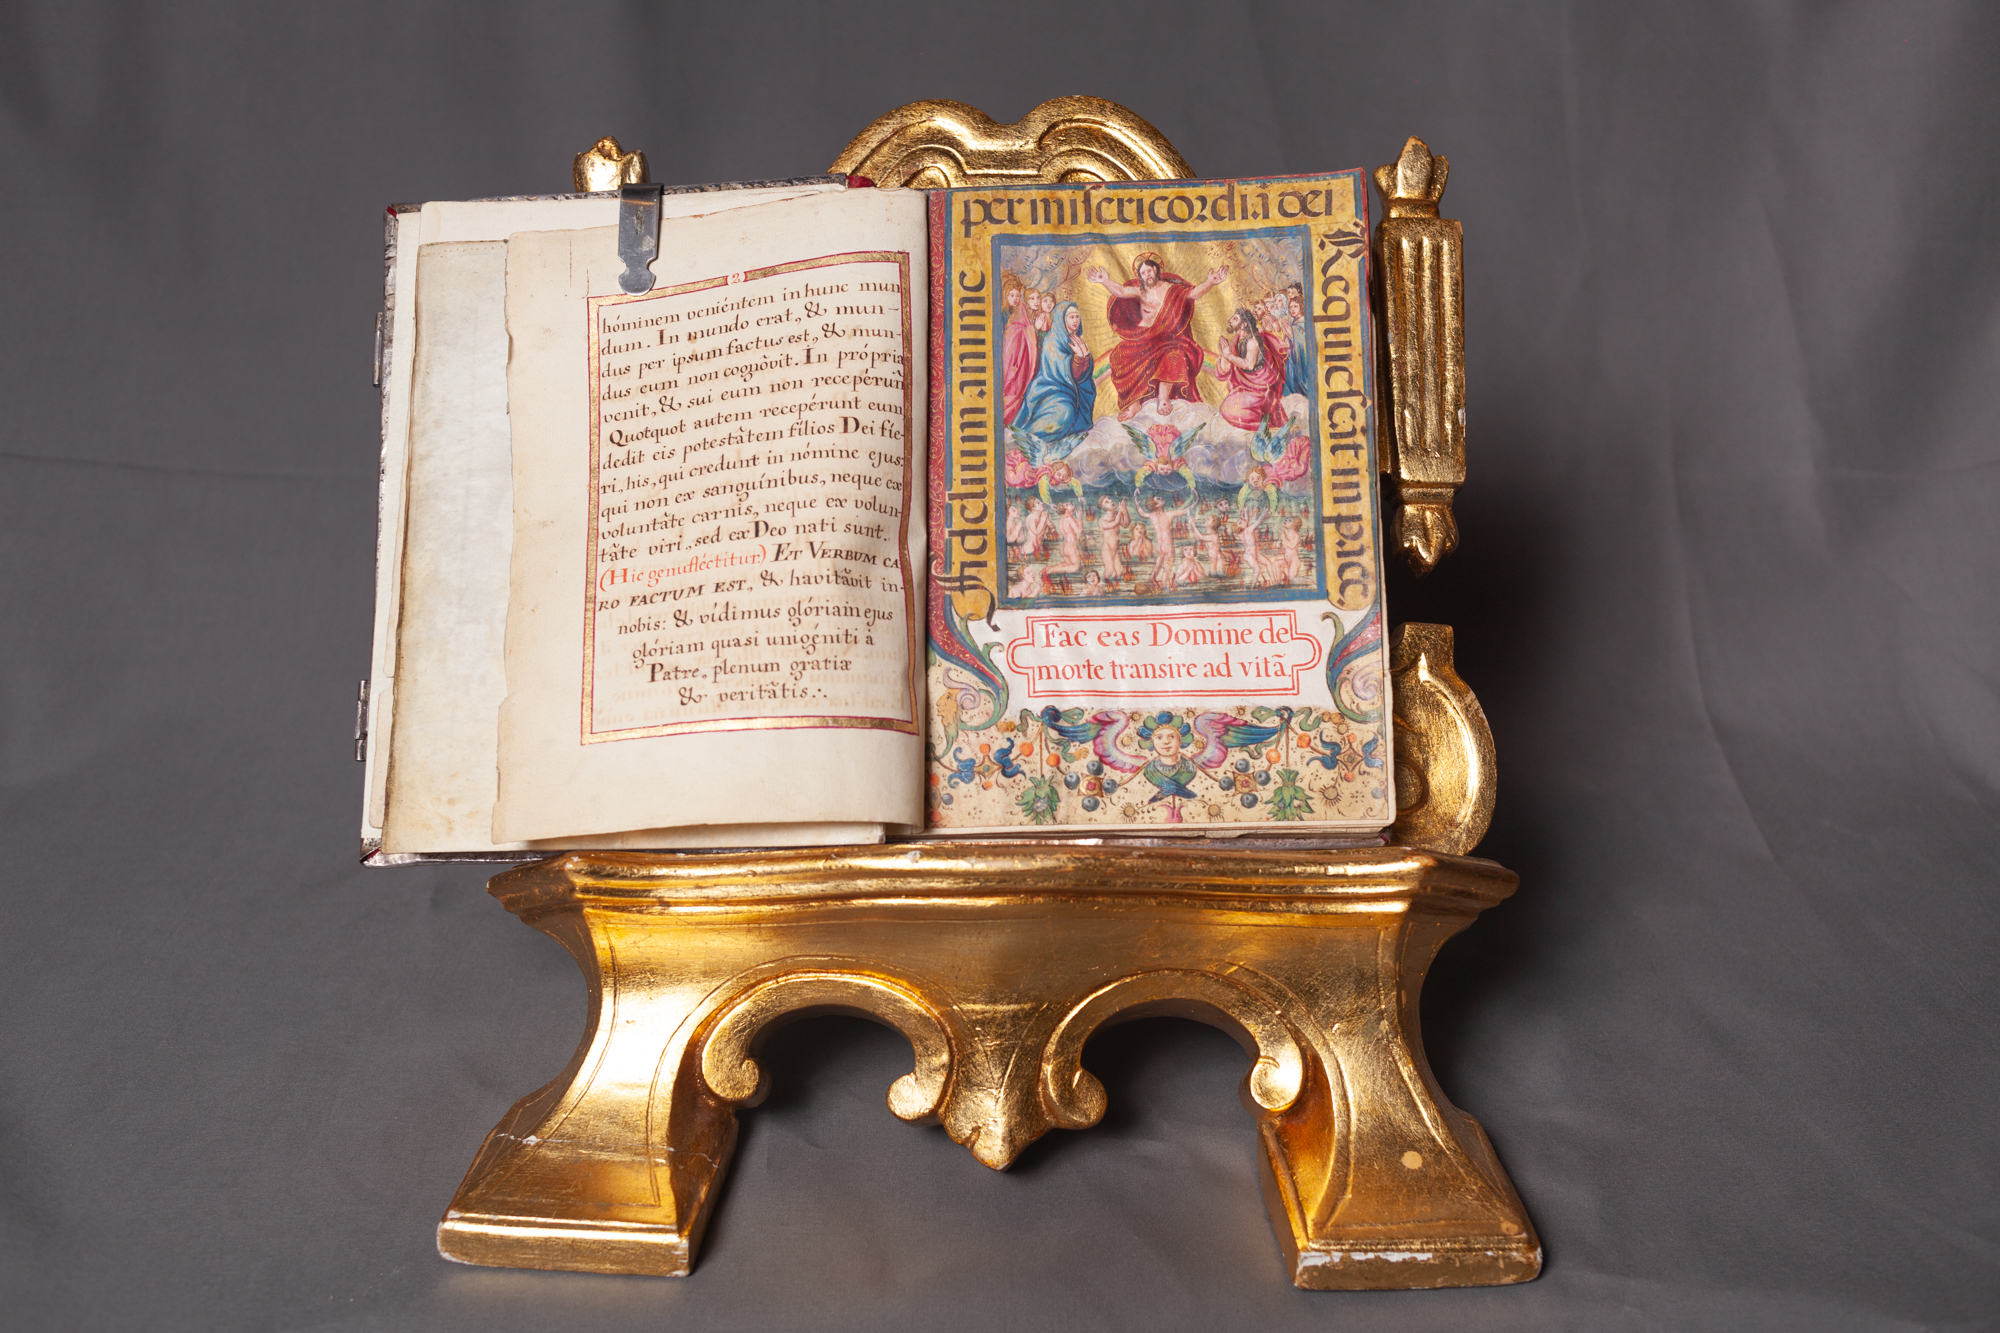 2
hóminem veniéntem in hunc mun
dum. In mundo erat, & mun-
dus per ipsum factus est, & mun-
dus eum non cognòvit. In própria
venit, & sui eum non recepérũt
Quotquot autem recepérunt eum
dedit eis potestàtem fílios Dei fíe-
ri, his, qui credunt in nómine ejus:
qui non ex sanguínibus, neque ex
voluntàte carnis, neque ex volun-
tàte viri, sed ex Deo nati sunt.
(Hic genufléctitur) ET VERBUM CA
RO FACTUM EST, & havitàvit in-
nobis: & vídimus glóriam ejus
glóriam quasi unigéniti à
Patre, plenum gratiæ
& veritàtis.
Fidelium anime
per misericordiã dei
Requiescãt in pace
Fac eas Domine de
morte transire ad vitã.